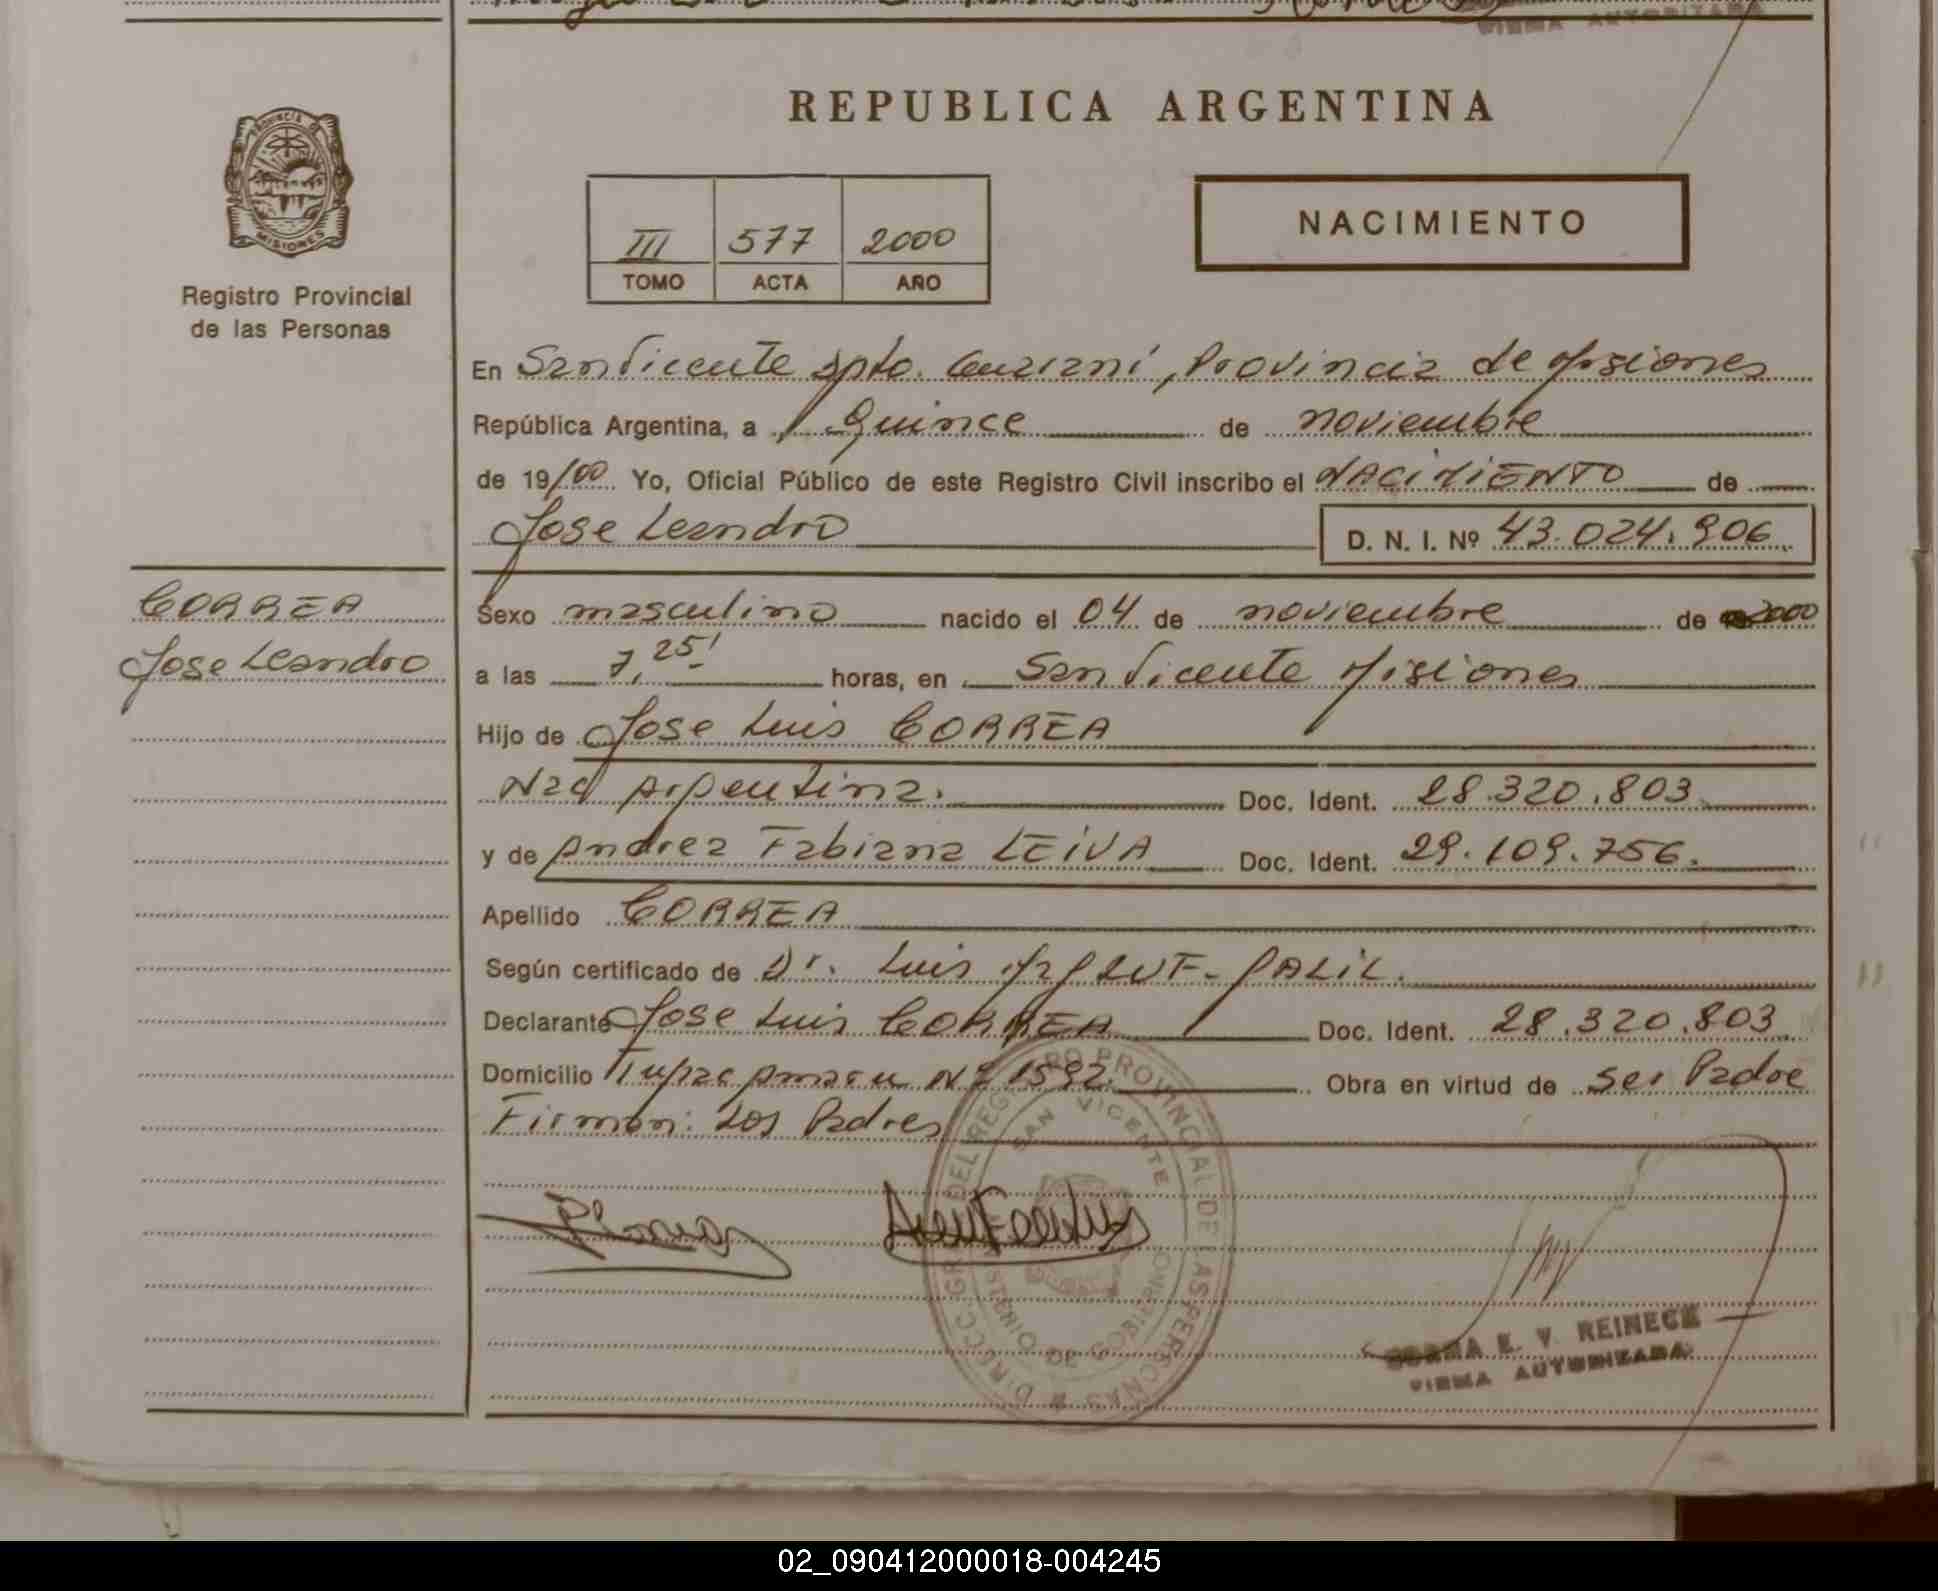 FIRMA AUTORIZADA
REPUBLICA ARGENTINA
PROVINCIA DE
MISIONES
Registro Provincial
de las Personas
III 577 2000
TOMO ACTA AÑO
NACIMIENTO
En San Vicente Dpto. Guaraní, Provincia de Misiones
República Argentina, a Quince de noviembre
de 19/00 Yo, Oficial Público de este Registro Civil inscribo el NACIMIENTO de
Jose Leandro D. N. I. Nº 43.024.906
CORREA
Jose Leandro
Sexo masculino nacido el 04 de noviembre de 2000
a las 7,25' horas, en San Vicente Misiones
Hijo de Jose Luis CORREA
Nac Argentina. Doc. Ident. 28.320.803
y de Andrea Fabiana LEIVA Doc. Ident. 29.109.756.
Apellido CORREA
Según certificado de Dr. Luis
Declarante Jose Luis CORREA Doc. Ident. 28.320.803
Domicilio Tupac Amaru Nº 1592. Obra en virtud de ser Padre
Firman: Los Padres
DIRECC. GRAL DEL REGISTRO PROVINCIAL DE LAS PERSONAS
SAN VICENTE
MINISTERIO DE GOBIERNO
NORMA E. V. REINECK
FIRMA AUTORIZADA
02_090412000018-004245